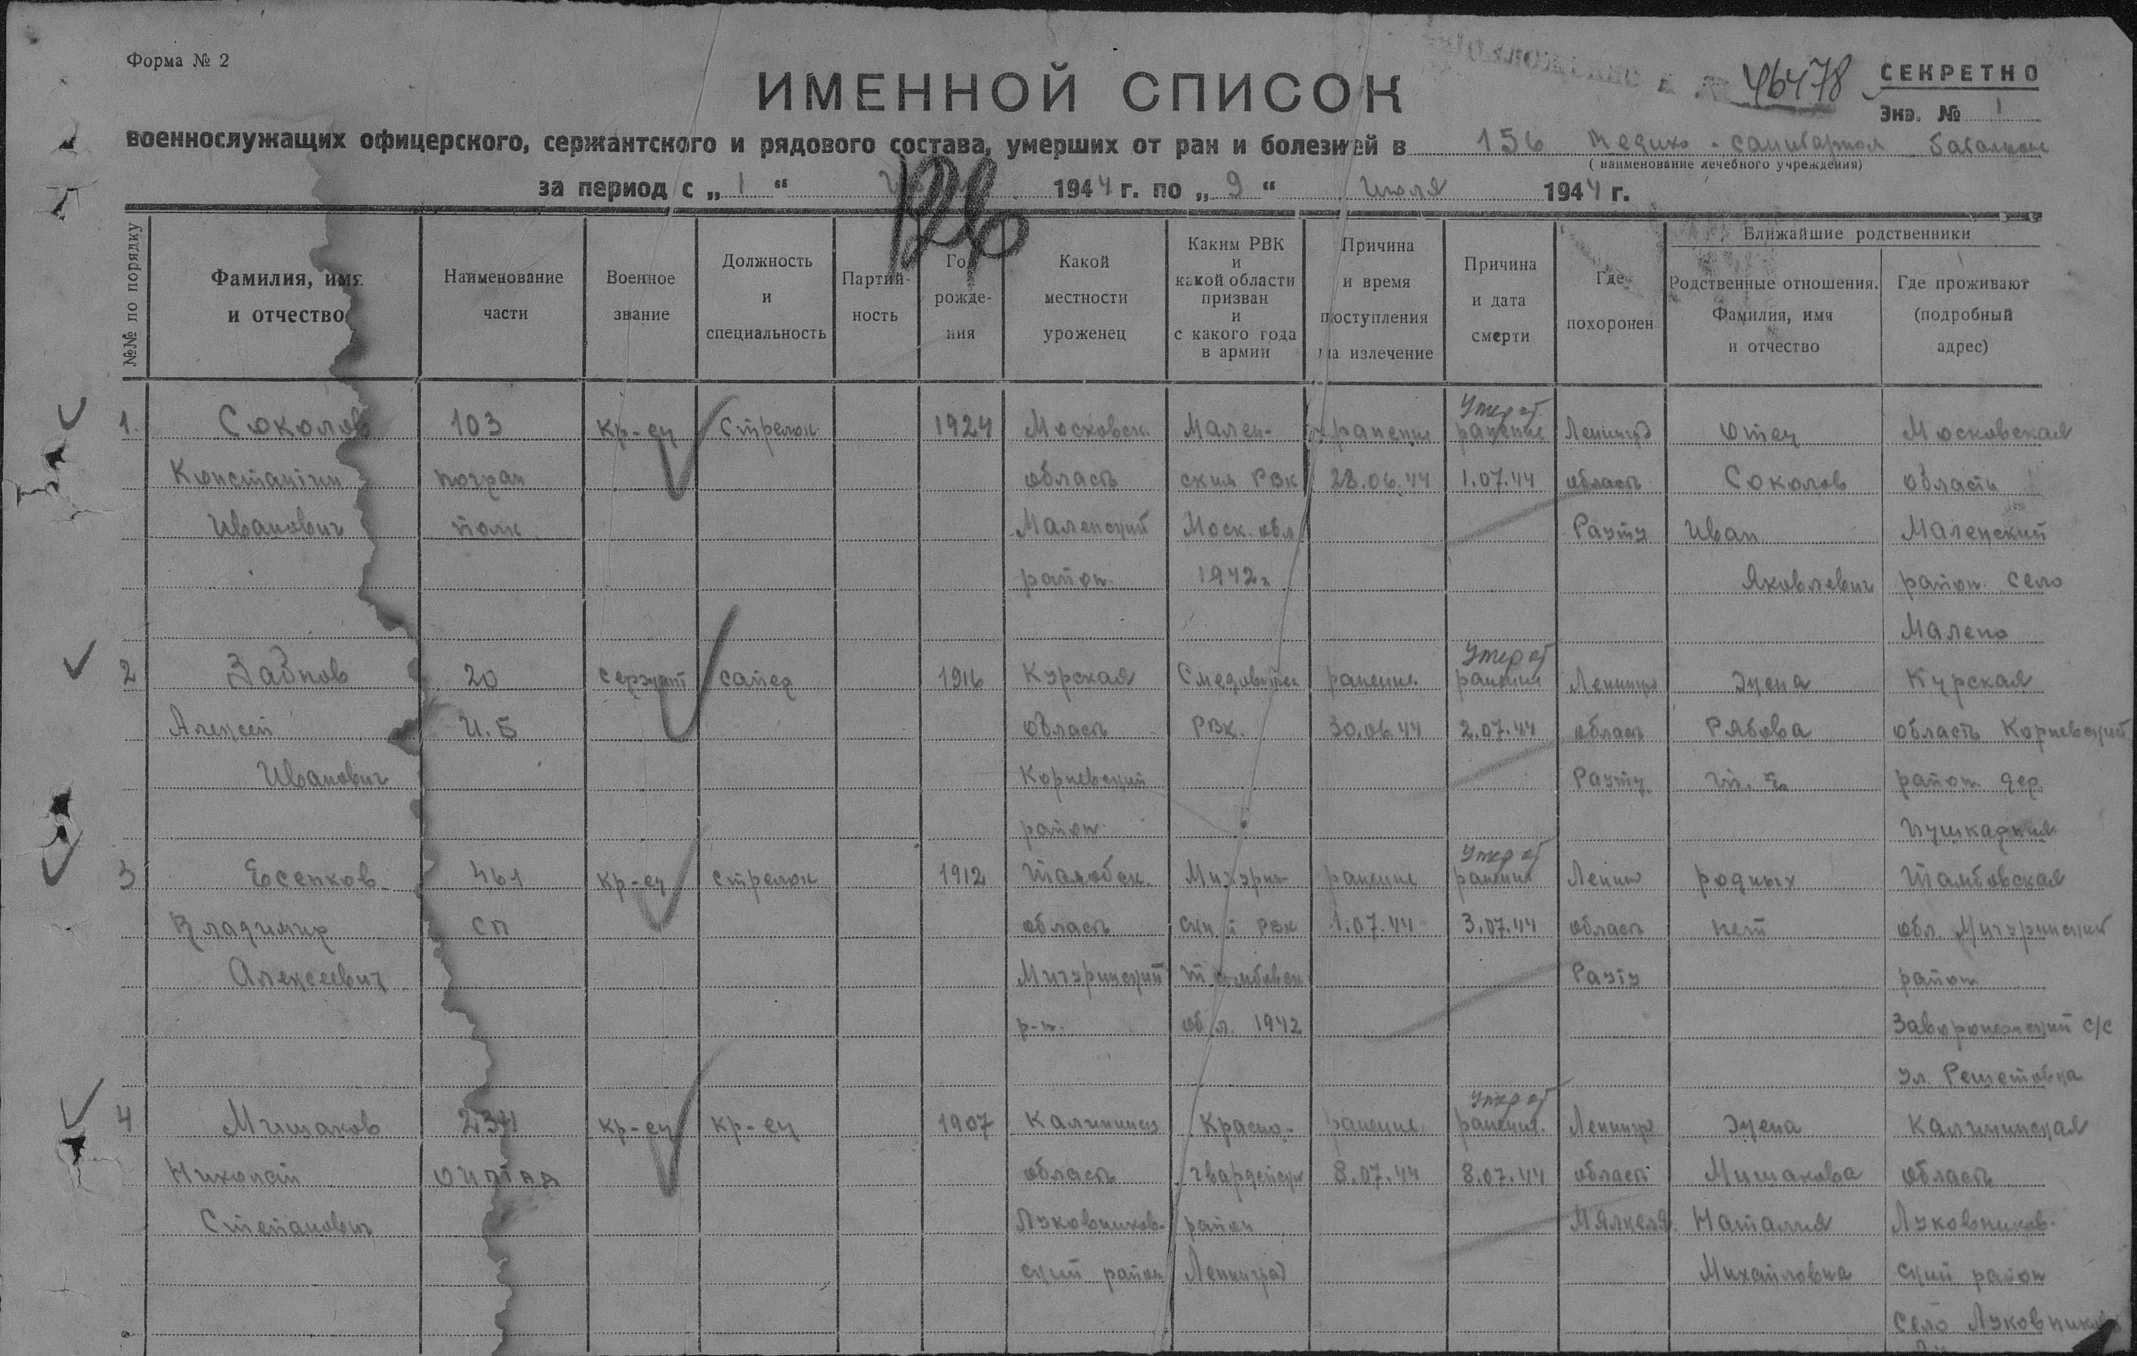 Форма № 2
46478
СЕКРЕТНО
ИМЕННОЙ СПИСОК
Экз. № 1
военнослужащих офицерского, сержантского и рядового состава, умерших от ран и болезней в 156 медико-санитарном батальоне
(наименование лечебного учреждения)
за период с „ 1 “ 1944 г. по „ 9 “ июля 1944 г.
№№ по порядку
Фамилия, имя и отчество
Наименование части
Военное звание
Должность и специальность
Партийность
Год рождения
Какой местности уроженец
Каким РВК и какой области призван и с какого года в армии
Причина и время поступления на излечение
Причина и дата смерти
Где похоронен
Ближайшие родственники
Родственные отношения. Фамилия, имя и отчество
Где проживают (подробный адрес)
Умер от
1. Соколов 103 кр-ец Стрелок 1924 Московск. Мален- ранение ранение Ленингр отец Московская
Константин погран область ский РВК 28.06.44 1.07.44 область Соколов область
Иванович полк Маленский Моск. обл Рауты Иван Маленский
район 1942 г Яковлевич район село
Малено
Умер от
2 20 сержант сапер 1916 Курская ранение ранения Ленингр Жена Курская
Алексей И.Б область РВК. 30.06.44 2.07.44 область Рябова область Кореневский
Иванович Кореневский Рауту район дер.
район
Умер от
3 Есенков 461 кр-ец стрелок 1912 Тамбовск. ранение ранения Ленинг родных Тамбовская
Владимир СП область ский РВК 1.07.44 3.07.44 область нет обл. Мичуринский
Алексеевич Мичуринский Тамбовск Рауту район
р-н. обл. 1942 с/с
ул. Решетовка
Умер от
4 Мишаков 234 кр-ец кр-ец 1907 Калининск Красно- ранение ранения. Ленингр Жена Калининская
Николай ОИПТАД область гвардейск 8.07.44 8.07.44 область Мишакова область
Степанович Луковников- район Мялкеля Наталия Луковников-
ский район Ленинград Михайловна ский район
село Луковниково